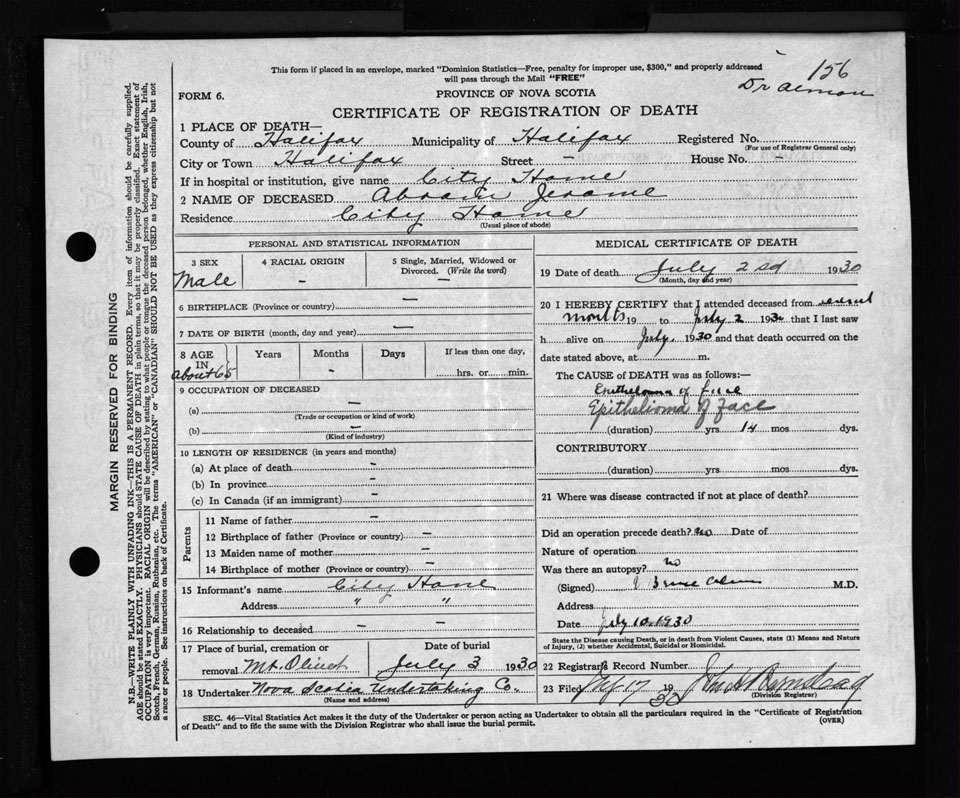 This form if placed in an envelope, marked "Dominion Statistics—Free, penalty for improper use, $300," and properly addressed
will pass through the Mail "FREE"
156
Dr Almon
FORM 6.
PROVINCE OF NOVA SCOTIA
CERTIFICATE OF REGISTRATION OF DEATH
1 PLACE OF DEATH—
County of Halifax Municipality of Halifax Registered No.
(For use of Registrar General only)
City or Town Halifax Street - House No. -
If in hospital or institution, give name City Home
2 NAME OF DECEASED Jerome
Residence City Home
(Usual place of abode)
PERSONAL AND STATISTICAL INFORMATION
3 SEX
Male
4 RACIAL ORIGIN
-
5 Single, Married, Widowed or
Divorced. (Write the word)
-
6 BIRTHPLACE (Province or country) —
7 DATE OF BIRTH (month, day and year) —
8 AGE
IN
about 65
Years Months Days If less than one day,
- hrs. or min.
9 OCCUPATION OF DECEASED
(a) —
(Trade or occupation or kind of work)
(b) —
(Kind of industry)
10 LENGTH OF RESIDENCE (in years and months)
(a) At place of death -
(b) In province -
(c) In Canada (if an immigrant) -
Parents
11 Name of father -
12 Birthplace of father (Province or country) -
13 Maiden name of mother -
14 Birthplace of mother (Province or country) -
15 Informant's name City Home
Address " "
16 Relationship to deceased - -
17 Place of burial, cremation or
removal Mt. Olivet
Date of burial
July 3 1930
18 Undertaker Nova Scotia Undertaking Co.
(Name and address)
MEDICAL CERTIFICATE OF DEATH
19 Date of death July 2nd 1930
(Month, day and year)
20 I HEREBY CERTIFY that I attended deceased from several
months 19 to July 2 1930 that I last saw
h alive on July 1930 and that death occurred on the
date stated above, at m.
The CAUSE of DEATH was as follows:—
Epithelioma of face
Epithelioma of Face
(duration) yrs 14 mos dys.
CONTRIBUTORY
(duration) yrs mos dys.
21 Where was disease contracted if not at place of death?
Did an operation precede death? No Date of
Nature of operation
Was there an autopsy? no
(Signed) Bruce Almon M.D.
Address
Date July 10, 1930
State the Disease causing Death, or in death from Violent Causes, state (1) Means and Nature
of Injury, (2) whether Accidental, Suicidal or Homicidal.
22 Registrar's Record Number
23 Filed 17 1930 John
(Division Registrar)
SEC. 46—Vital Statistics Act makes it the duty of the Undertaker or person acting as Undertaker to obtain all the particulars required in the "Certificate of Registration
of Death" and to file the same with the Division Registrar who shall issue the burial permit.
(OVER)
MARGIN RESERVED FOR BINDING
N.B.—WRITE PLAINLY WITH UNFADING INK—THIS IS A PERMANENT RECORD. Every item of information should be carefully supplied.
AGE should be stated EXACTLY. PHYSICIANS should STATE CAUSE OF DEATH in plain terms, so that it may be properly classified. Exact statement of
OCCUPATION is very important. RACIAL ORIGIN will be described by stating to what people or tongue the deceased person belonged, whether English, Irish,
Scotch, French, German, Russian, Ruthenian, etc. The terms "AMERICAN" or "CANADIAN" SHOULD NOT BE USED as they express citizenship but not
a race or people. See instructions on back of Certificate.